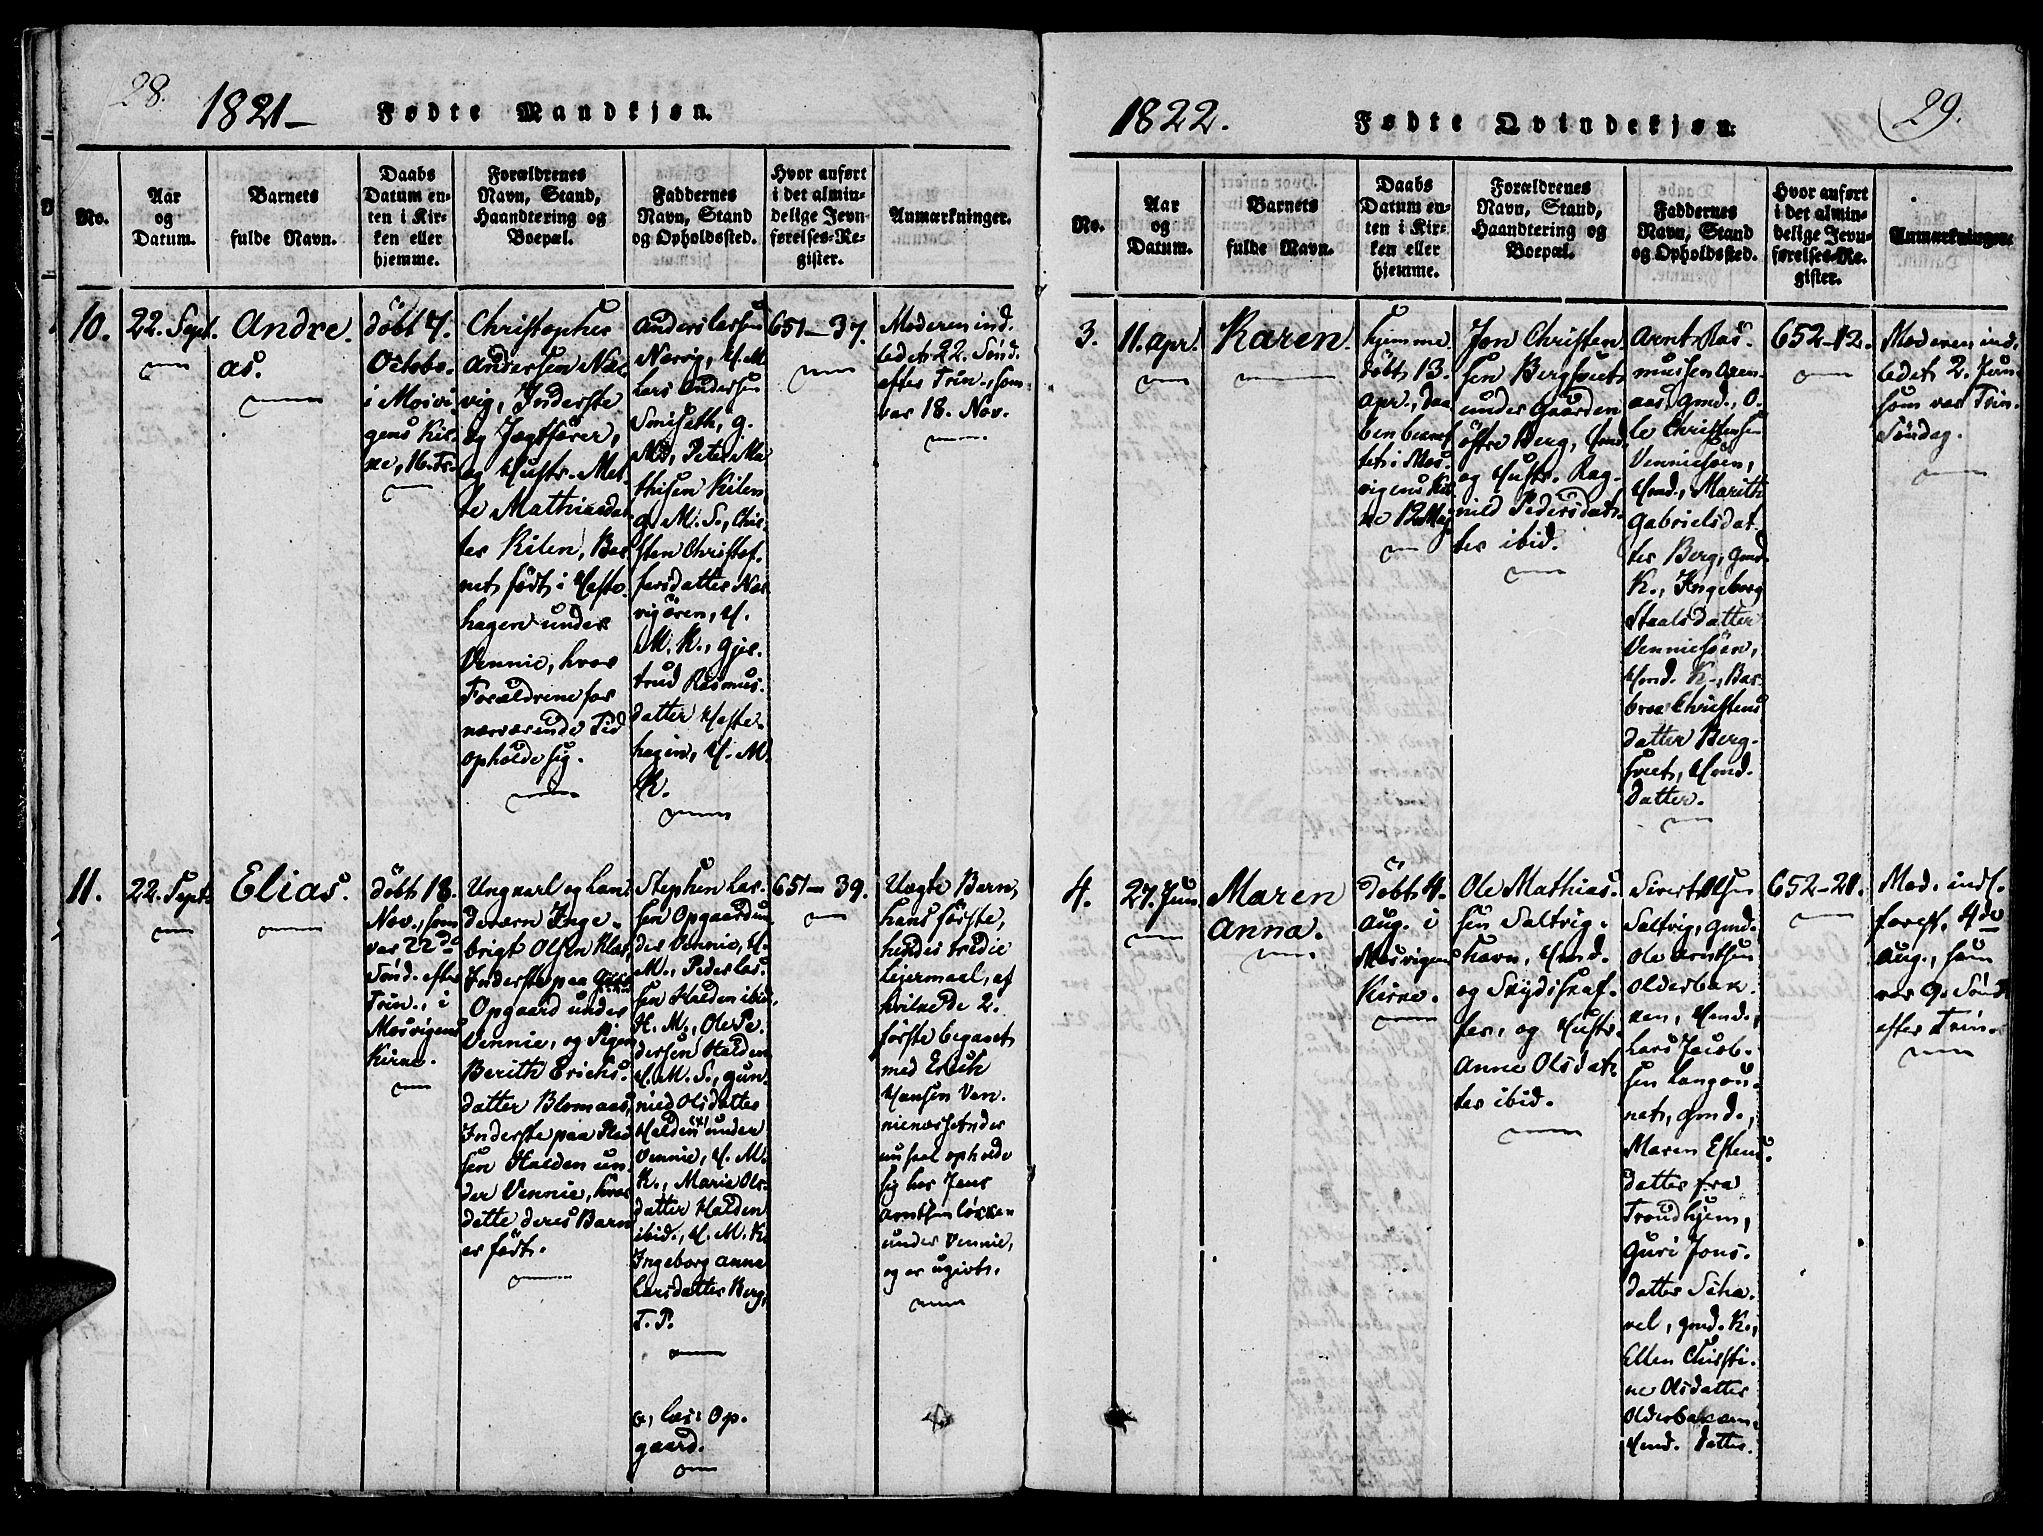 28.
1821-
Fødte Mandkjøn.
No.
Aar
og
Datum.
Barnets
fulde Navn.
Daabs
Datum en-
ten i Kir-
ken eller
hjemme.
Forældrenes
Navn, Stand,
Haandtering og
Boepæl.
Faddernes
Navn, Stand
og Opholdssted.
Hvor anført
i det almin-
delige Jevn-
førelses-Re-
gister.
Anmærkninger.
10.
22. Sept.
Andre.
as.
döbt 7.
Octobr.
i Mosvi-
gens Kir-
ke, 16. Tr.
Christopher
Andersen Næs
vig, Inderste
og Jægtfører,
og Hustr. Met
te Mathiasdat
ter Kilen, Bar
net födt i Heste
hagen under
Vennie, hvor
Forældrene for
nærværende Tid
opholde sig.
Anders Larsen
Næsvig, H. M.
Lars Andersen
Smiseth, g.
M., Peter Ma
thisen Kilen
g. M. S., Chir-
sten Christof-
fersdatter Næs
vigören, H.
M. K., Gjer
trud Rasmus.
datter Heste-
hagen, H. M.
K.
651-37.
Moderen ind.
ledet 22. Sönd.
efter Trin., som
var 18. Nov.
11.
22. Sept.
Elias.
döbt 18.
Nov., som
var 22de
Sönd. efter
Trin., i
Mosvigens
Kirke.
Ungkarl og Lan
deværn Inge-
brigt Olsen
Inderste paa
Opgaard under
Vennie, og Pigen
Berith Erichs.
datter Blomaas,
Inderste paa Plad
sen Halden un-
der Vennie, hvor
dette deres Barn
er födt.
Stephen Lar.
sen Opgaard un
der Vennie, H.
M., Peder Lar.
sen Halden ibid.
H. M., Ole Pe.
dersen Halden
H. M. S., Gun-
nild Olsdatter
Halden under
Vennie, H. M.
K., Marie Ols-
datter Halden
ibid., H. M. K.
Ingeborg Anna
Larsdatter Berg,
T. P.
læs: Op.
gaard.
651-39.
Uægte Barn,
hans förste,
hendes tredie
Leiermaal, af
hvilke de 2.
förste begaaet
med Erich
Hansen Ven.
der
nu skal opholde
sig hos Jens
Arntsen Løkken
under Vennie,
og er ugivt.
1822.
Fødte Qvindekjøn.
29.
No.
Aar
og
Datum.
Barnets
fulde Navn.
Daabs
Datum en-
ten i Kir-
ken eller
hjemme.
Forældrenes
Navn, Stand,
Haandtering og
Boepæl.
Faddernes
Navn, Stand
og Opholdssted.
Hvor anført
i det almin-
delige Jevn-
førelses-Re-
gister.
Anmærkninger.
3.
11. Apr.
Karen.
hjemme
döbt 13.
Apr., Daa
ben bekræf
tet i Mos.
vigens Kir
ke 12 Maj
Jon Christen
sen Bergsvet
under Gaarden
östre Berg, Hmd
og Hustr. Rag.
nild Pedersdat.
ter ibid.
Arnt Ras.
mussen
aas, Gmd., O.
le Christensen
Venniesöen,
Hmd., Marith
Gabrielsdat.
ter Berg, Gmd.
K., Ingeborg
Staalsdatter
Venniesöen,
Hmd. K., Bar
broe Christens
datter Berg-
svet, Hmd.
Datter.
652-12.
Moderen ind.
ledet 2. Jun.
som var Trin.
Söndag.
4.
27. Jun.
Maren
Anna.
döbt 4.
Aug. i
Mosvigens
Kirke.
Ole Mathias.
sen Saltvig.
havn, Hmd.
og Skydsskaf.
fer, og Hustr.
Anne Olsdat.
ter ibid.
Sivert Olsen
Saltvig, Gmd.
Ole Arntsen
Olderbak
ken, Hmd.,
Lars Jacob.
sen Langöu-
net, Gmd.,
Maren Estens.
datter fra
Trondhjem,
Guri Jons.
datter Siha.
vel, Gmd. K.,
Ellen Christi.
ne Olsdatter
Olderbakken
Hmd. Datter.
652-21.
Mod. indl.
forest. 4de
Aug., som
var 9. Sönd
efter Trin.